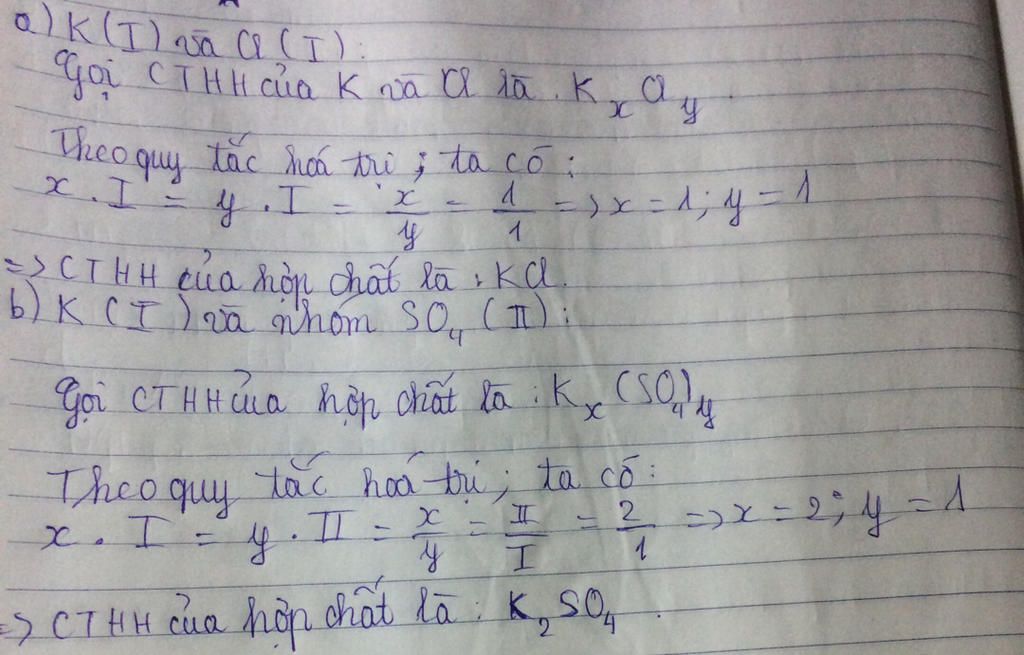 a) K (I) và Cl (I):
Gọi CTHH của K và Cl là. KₓClᵧ.
Theo quy tắc hoá trị; ta có:
x . I = y . I = x/y = 1/1 => x = 1; y = 1
=> CTHH của hợp chất là: KCl.
b) K (I) và nhóm SO₄ (II):
Gọi CTHH của hợp chất là: Kₓ(SO₄)ᵧ
Theo quy tắc hoá trị; ta có:
x . I = y . II = x/y = II/I = 2/1 => x = 2; y = 1
=> CTHH của hợp chất là: K₂SO₄.